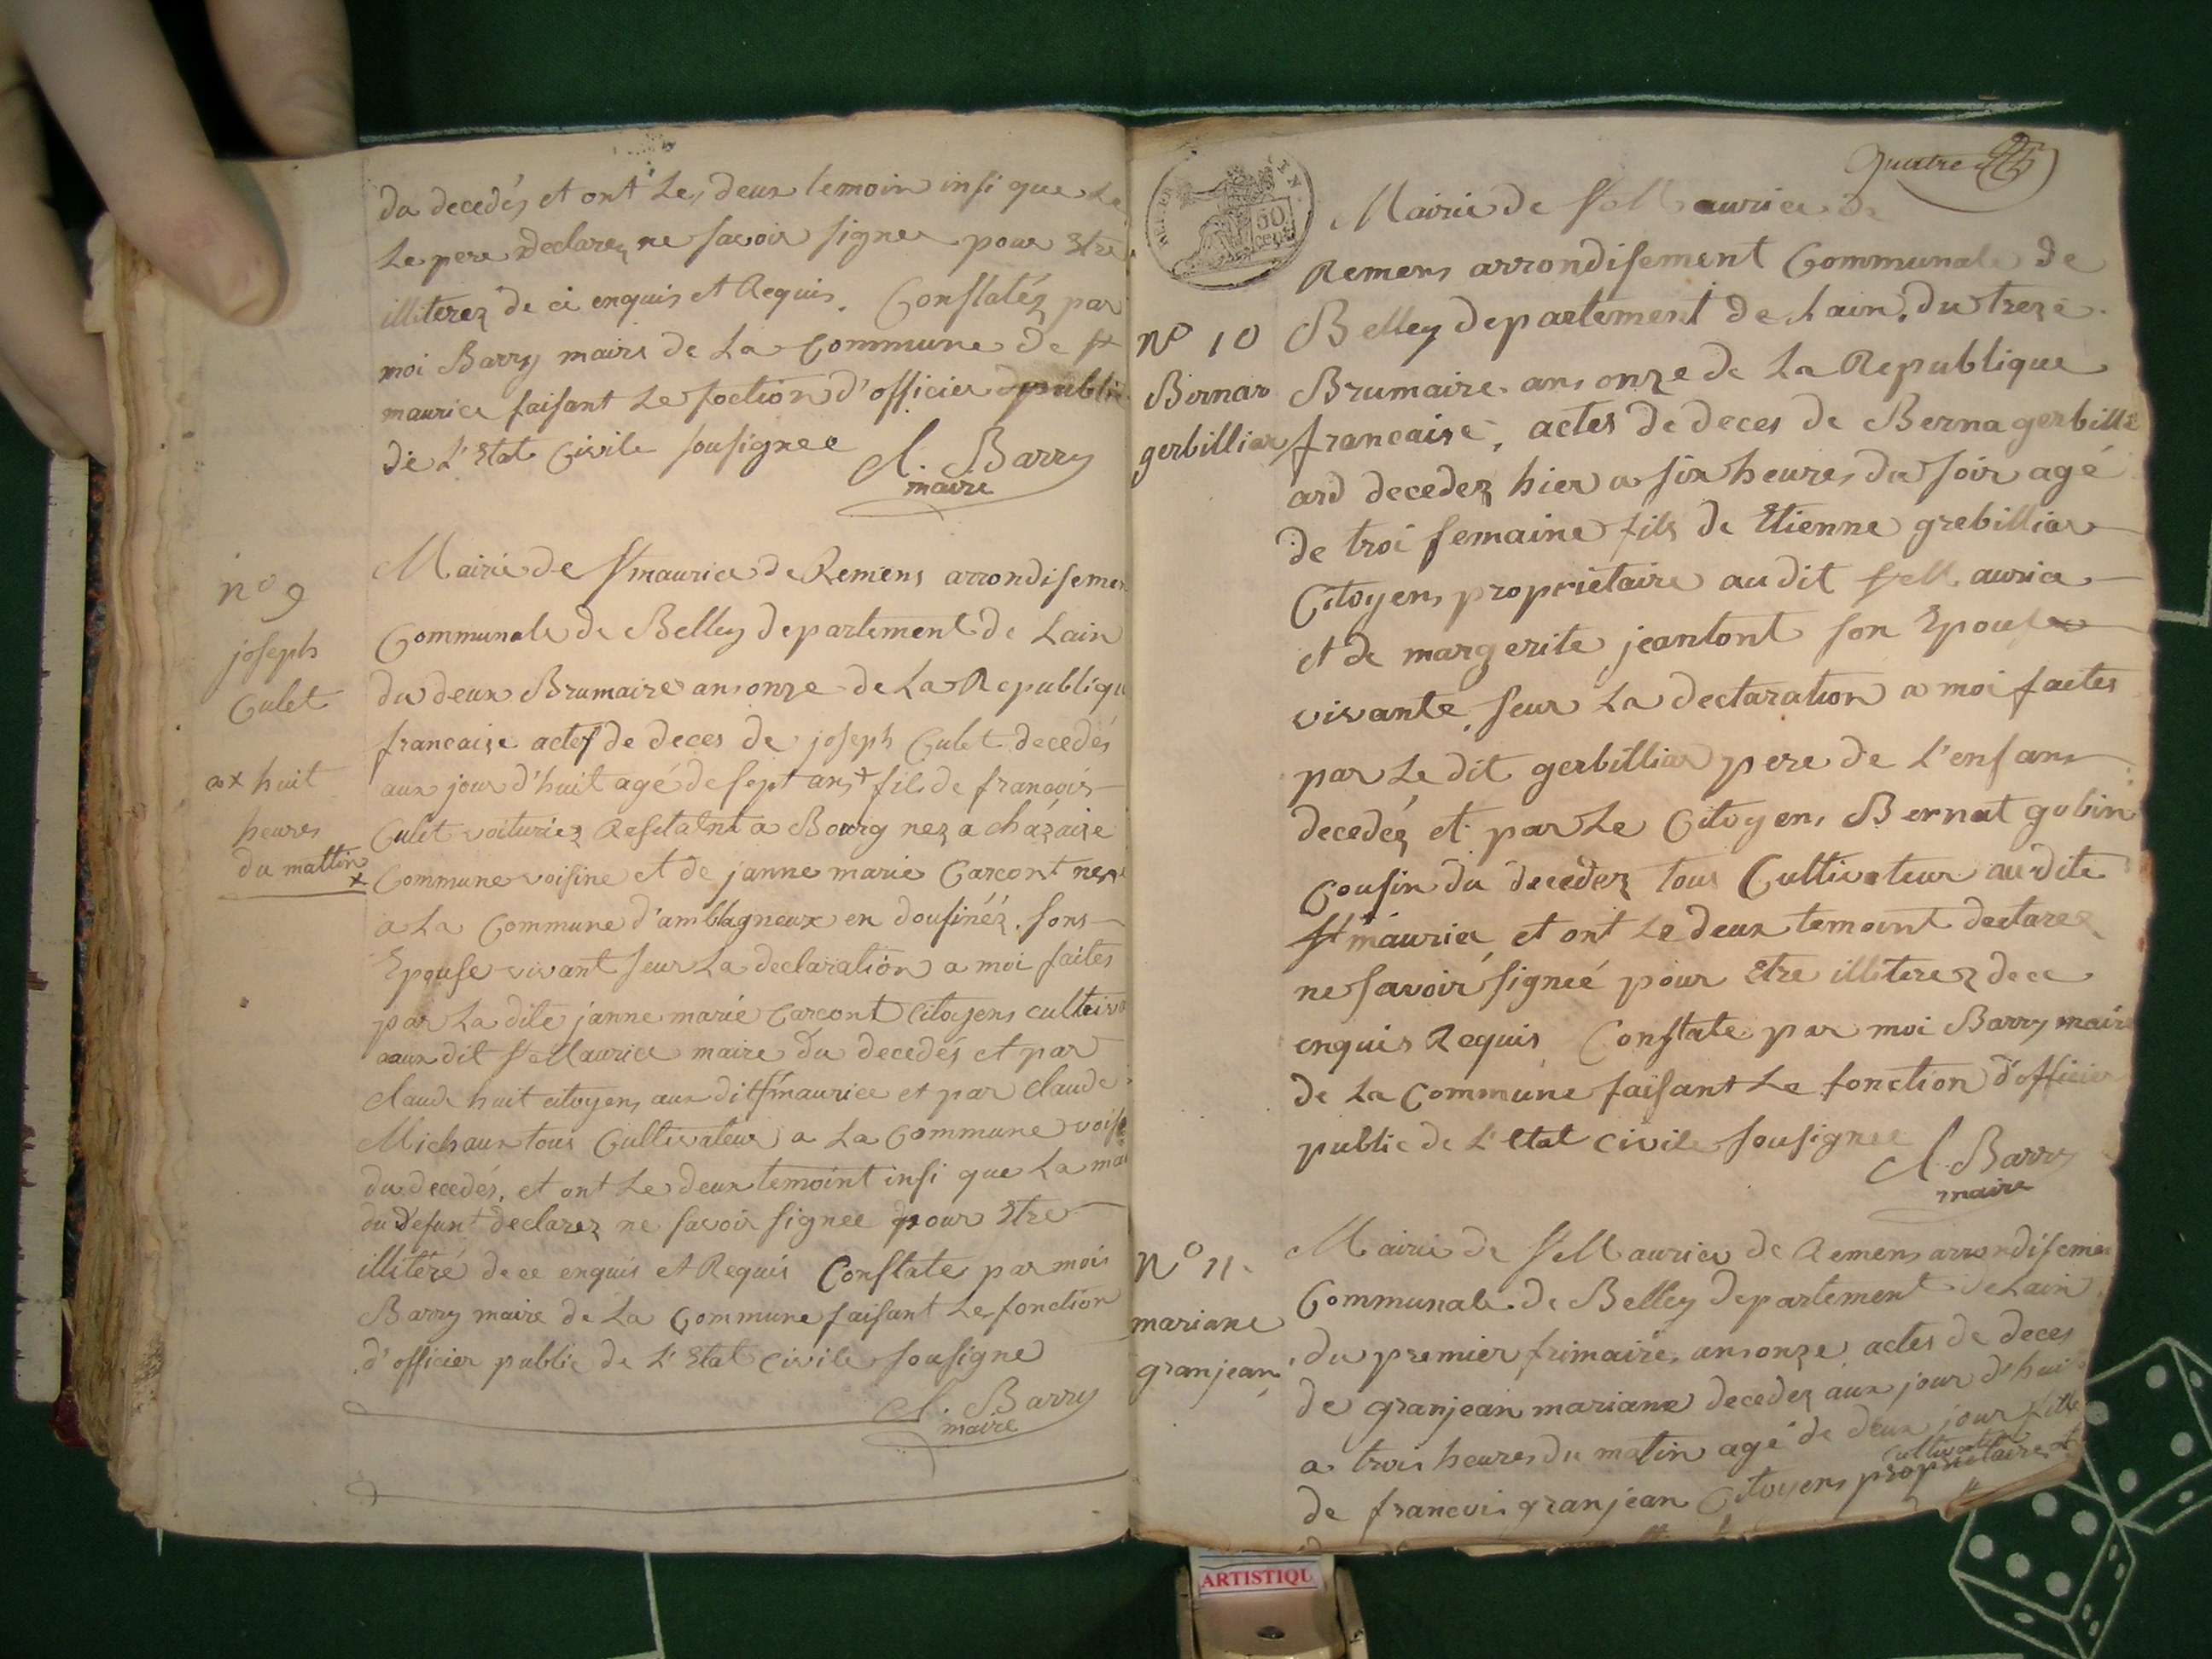 du decedés et ont les deux temoin insi que le
le pere declarez ne savoir signer pour Etre
illiterez de ci enquis et Requis. Constatéz par
moi Barry maire de la Commune de st
maurice faisant le foction d'officier publi
de l'Etat Civile sousignee
Cl. Barry
maire
n° 9
joseph
Culet
ax huit
heures
du mattin x
Mairie de st maurice de Remens arrondiseme
Communale de Belley departement de Lain
du deux Brumaire ans onze de la Republiqu
francaise actes de deces de joseph Culet decedés
aux jour d'huit agé de sept ans x fils de françois
Culet voiturier a Bourg nez a chazaize
Commune voisine et de janne marie Carcont nez
a la Commune d'amblagneux en doufinéz. sons
Epouse vivant seur la declaration a moi faites
par la dite janne marie Carcont Citoyens cultiva
aux dit st Maurice maire du decedés et par
claude huit citoyens aux dit st maurice et par claude
Michaux tous Cultivateur a la Commune voisi
du decedés, et ont le deux temoint insi que la mai
du defunt declarez ne savoir signee pour Etre
illitéré de ce enquis et Requis Constate par mois
Barry maire de la Commune faisant le fonction
d'officier public de l'Etat civile sousigne
Cl. Barry
maire
quatre
50
cent
Mairie de st Maurice de
Remens arrondisement Communale de
n° 10 Belley departement de Lain. du treze
Bernar Brumaire ans onze de la Republique
gerbilliar francaise, actes de deces de Berna gerbilli
ard decedez hier a six heures du soir agé
de troi semaine fils de Etienne grebilliar
Citoyens proprietaire au dit st Maurice
et de margerite jeantont son Epouse
vivante seur la declaration a moi faites
par le dit gerbilliar pere de l'enfans
decedéz et par le Citoyens Bernat gobin
Cousin du decedez tous Cultivateur audite
st maurice et ont le deux temoint declarez
ne savoir signeé pour Etre illiterez de ce
enquis Requis Constate par moi Barry maire
de la Commune faisant le fonction d'officier
public de l'Etat civile sousignee
Cl. Barry
maire
n° 11.
mariane
granjean
Mairie de st Maurice de Remens arrondiseme
Communale de Belley departement de Lain
du premier frimaire, ans onze actes de deces
de granjean mariane decedez aux jour d'hui
a trois heures du matin agé de deux jour fille
cultivateur
de francois granjean Citoyens proprietaire et
ARTISTIQU